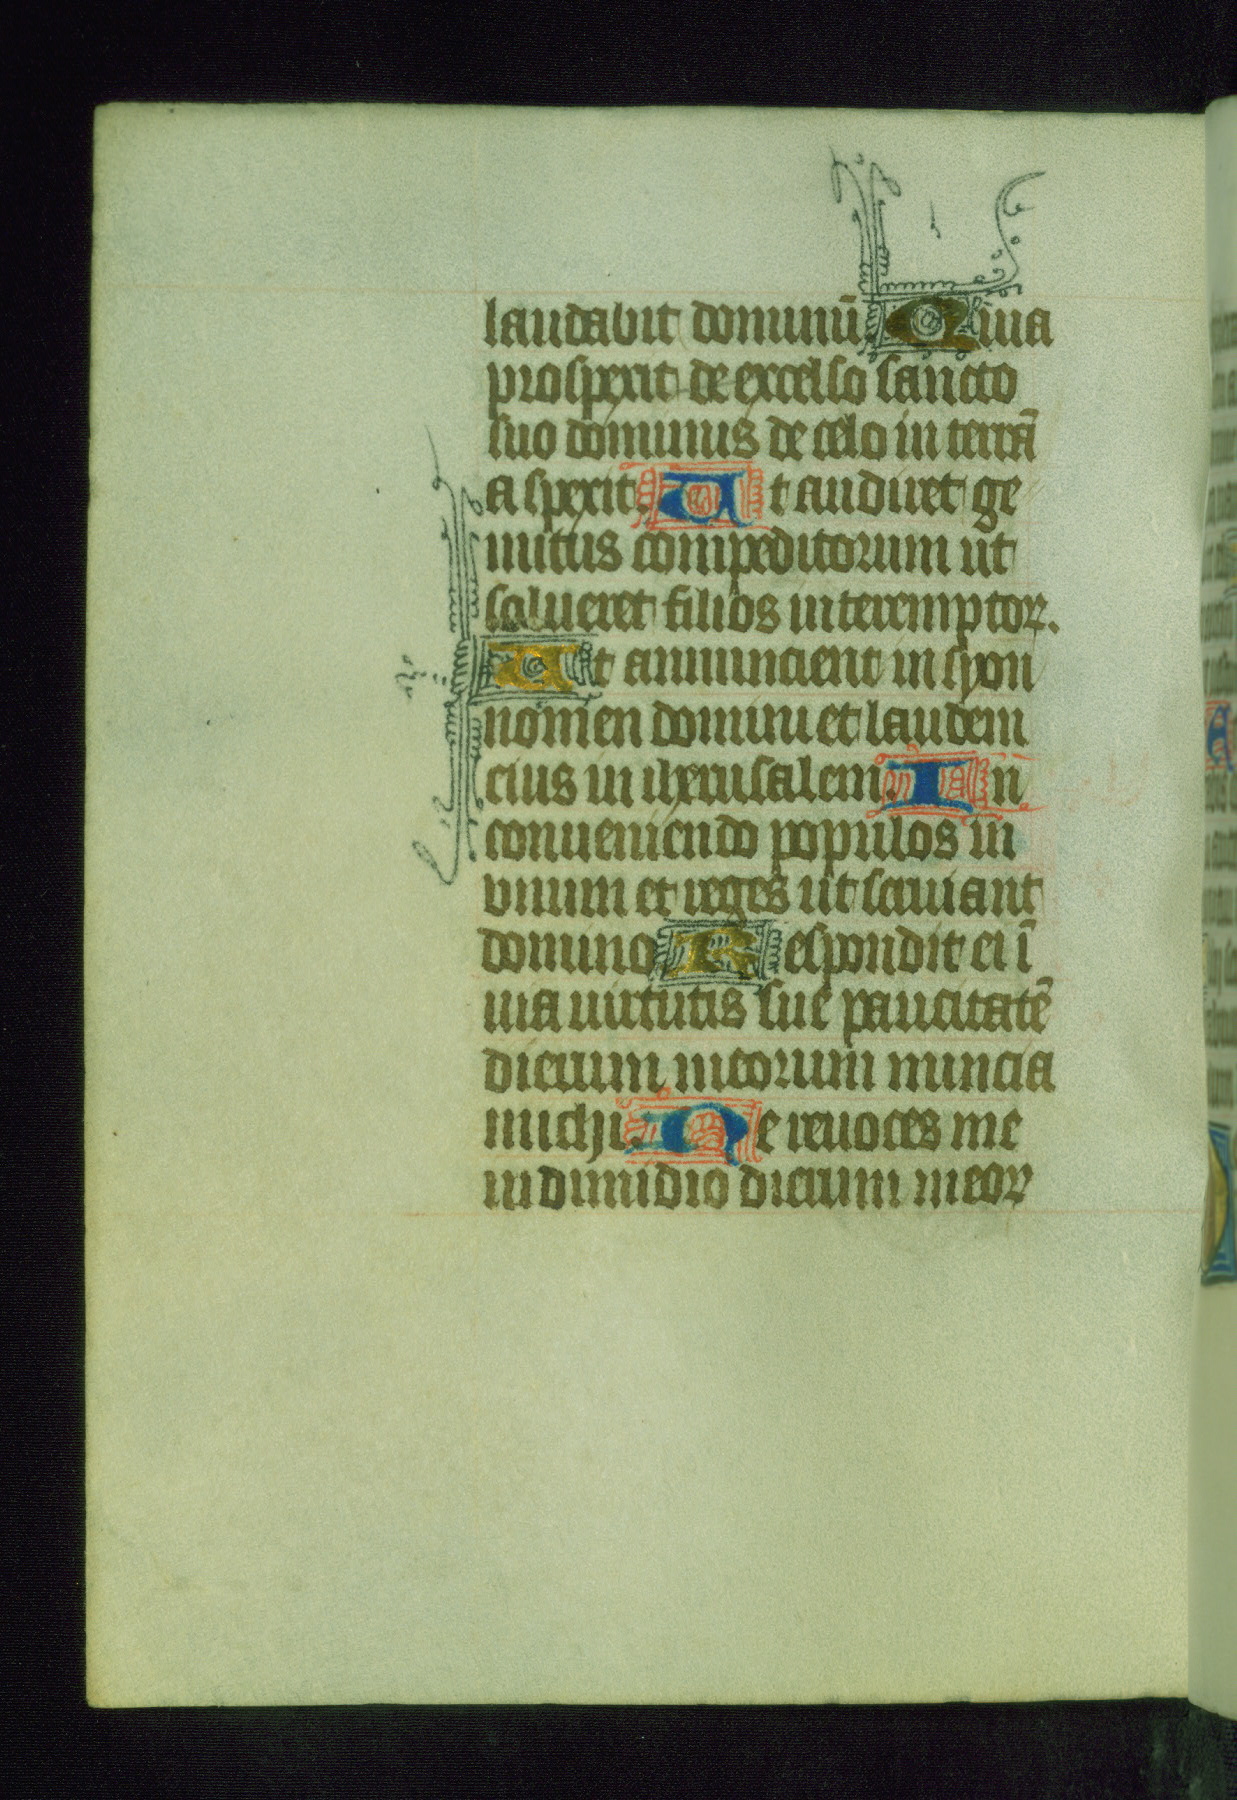 laudabit dominū Quia
prospexit de excelso sancto
suo dominus de celo in terrā
aspexit. Ut audiret ge
mitus compeditorum ut
solueret filios interemptoꝝ.
Ut annuncient in syon
nomen domini et laudem
eius in iherusalem. In
conueniendo populos in
vnum et reges ut seruiant
domino Respondit ei ī
uia uirtutis sue paucitatē
dierum meorum nuncia
michi. Ne reuoces me
in dimidio dierum meoꝝ